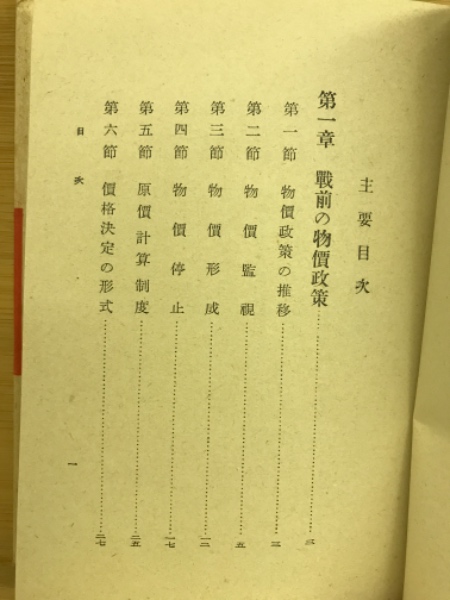 主要目次
第一章 戰前の物價政策
第一節 物價政策の推移
第二節 物價監視
第三節 物價形成 一二
第四節 物價停止 一七
第五節 原價計算制度 二五
第六節 價格決定の形式 二七
目次
一